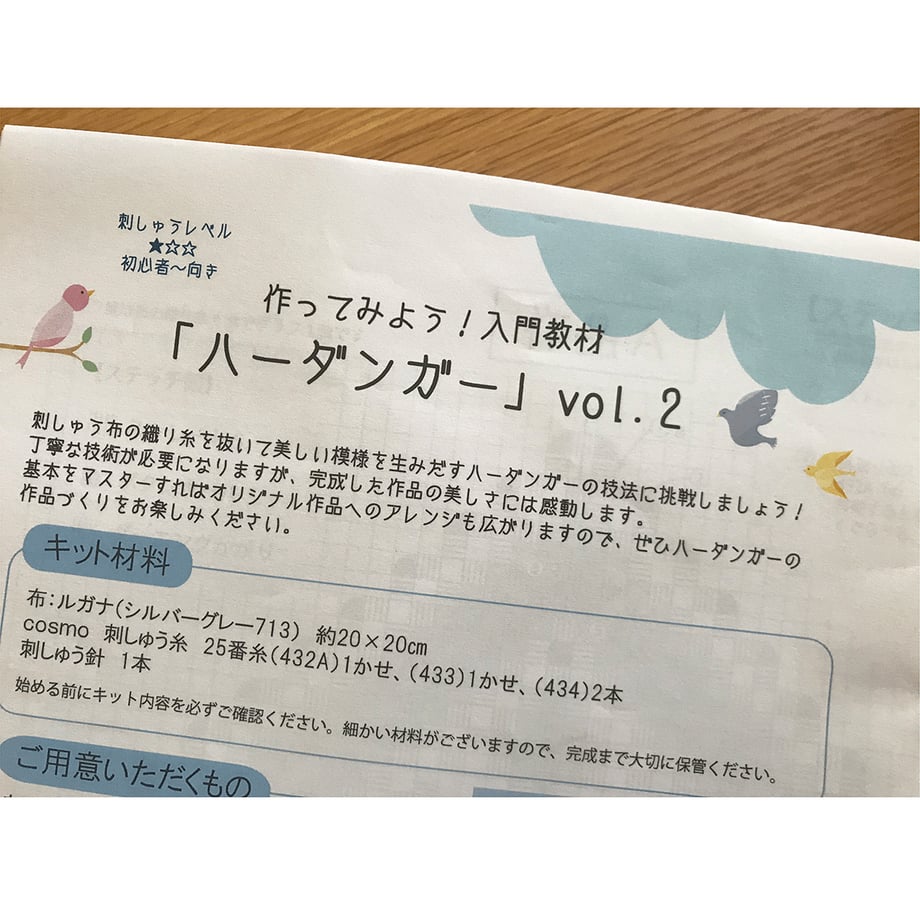 刺しゅうレベル
★☆☆
初心者～向き
作ってみよう!入門教材
「ハーダンガー」vol.2
刺しゅう布の織り糸を抜いて美しい模様を生みだすハーダンガーの技法に挑戦しましょう!
丁寧な技術が必要になりますが、完成した作品の美しさには感動します。
基本をマスターすればオリジナル作品へのアレンジも広がりますので、ぜひハーダンガーの
作品づくりをお楽しみください。
キット材料
布:ルガナ(シルバーグレー713) 約20×20cm
cosmo 刺しゅう糸 25番糸(432A)1かせ、(433)1かせ、(434)2本
刺しゅう針 1本
始める前にキット内容を必ずご確認ください。細かい材料がございますので、完成まで大切に保管ください。
ご用意いただくもの